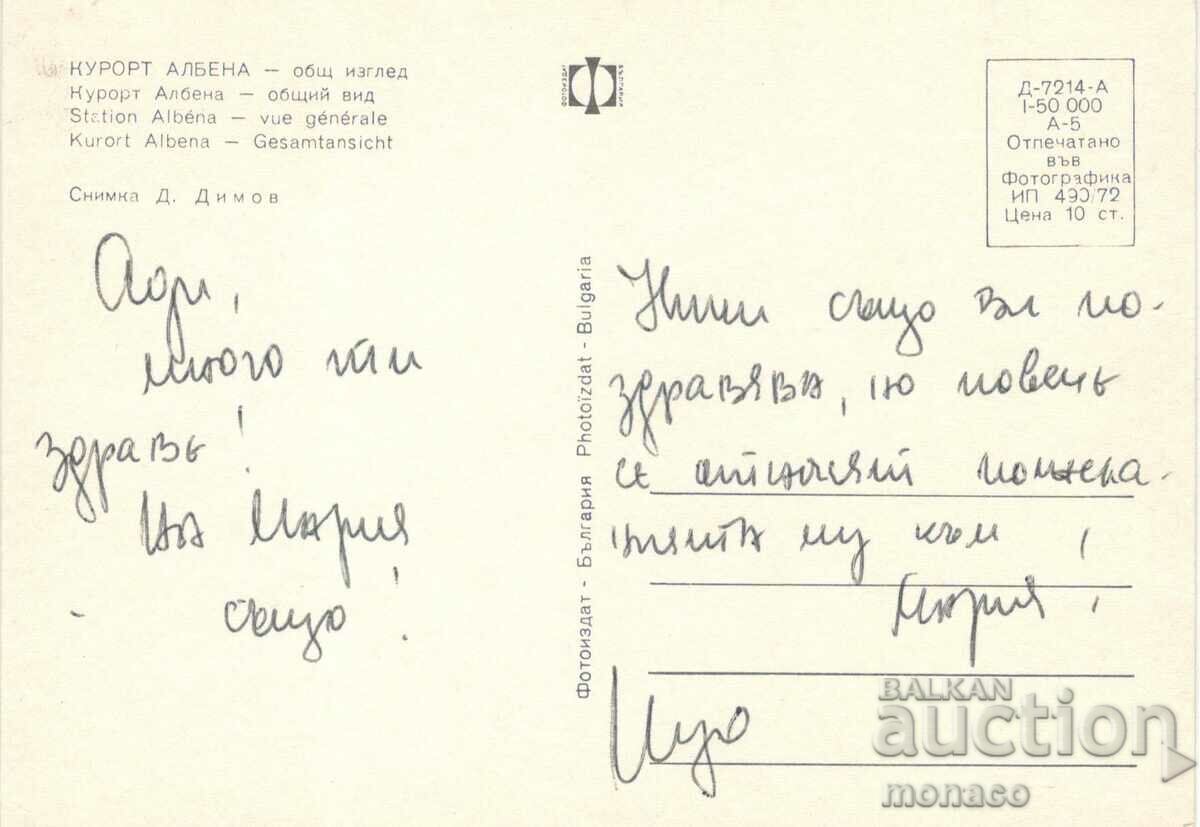 КУРОРТ АЛБЕНА — общ изглед
Курорт Албена — общий вид
Station Albéna — vue générale
Kurort Albena — Gesamtansicht
Снимка Д. Димов
ФОТОИЗДАТ БЪЛГАРИЯ
Д-7214-А
I-50 000
А-5
Отпечатано
във
Фотографика
ИП 490/72
Цена 10 ст.
Ади,
много ти
здраве!
На Мария
също!
Фотоиздат - България Photoïzdat - Bulgaria
също ви по-
здравява, но повече
се отнасят пожела-
нията му към
Мария!
BALKAN
auction
monaco